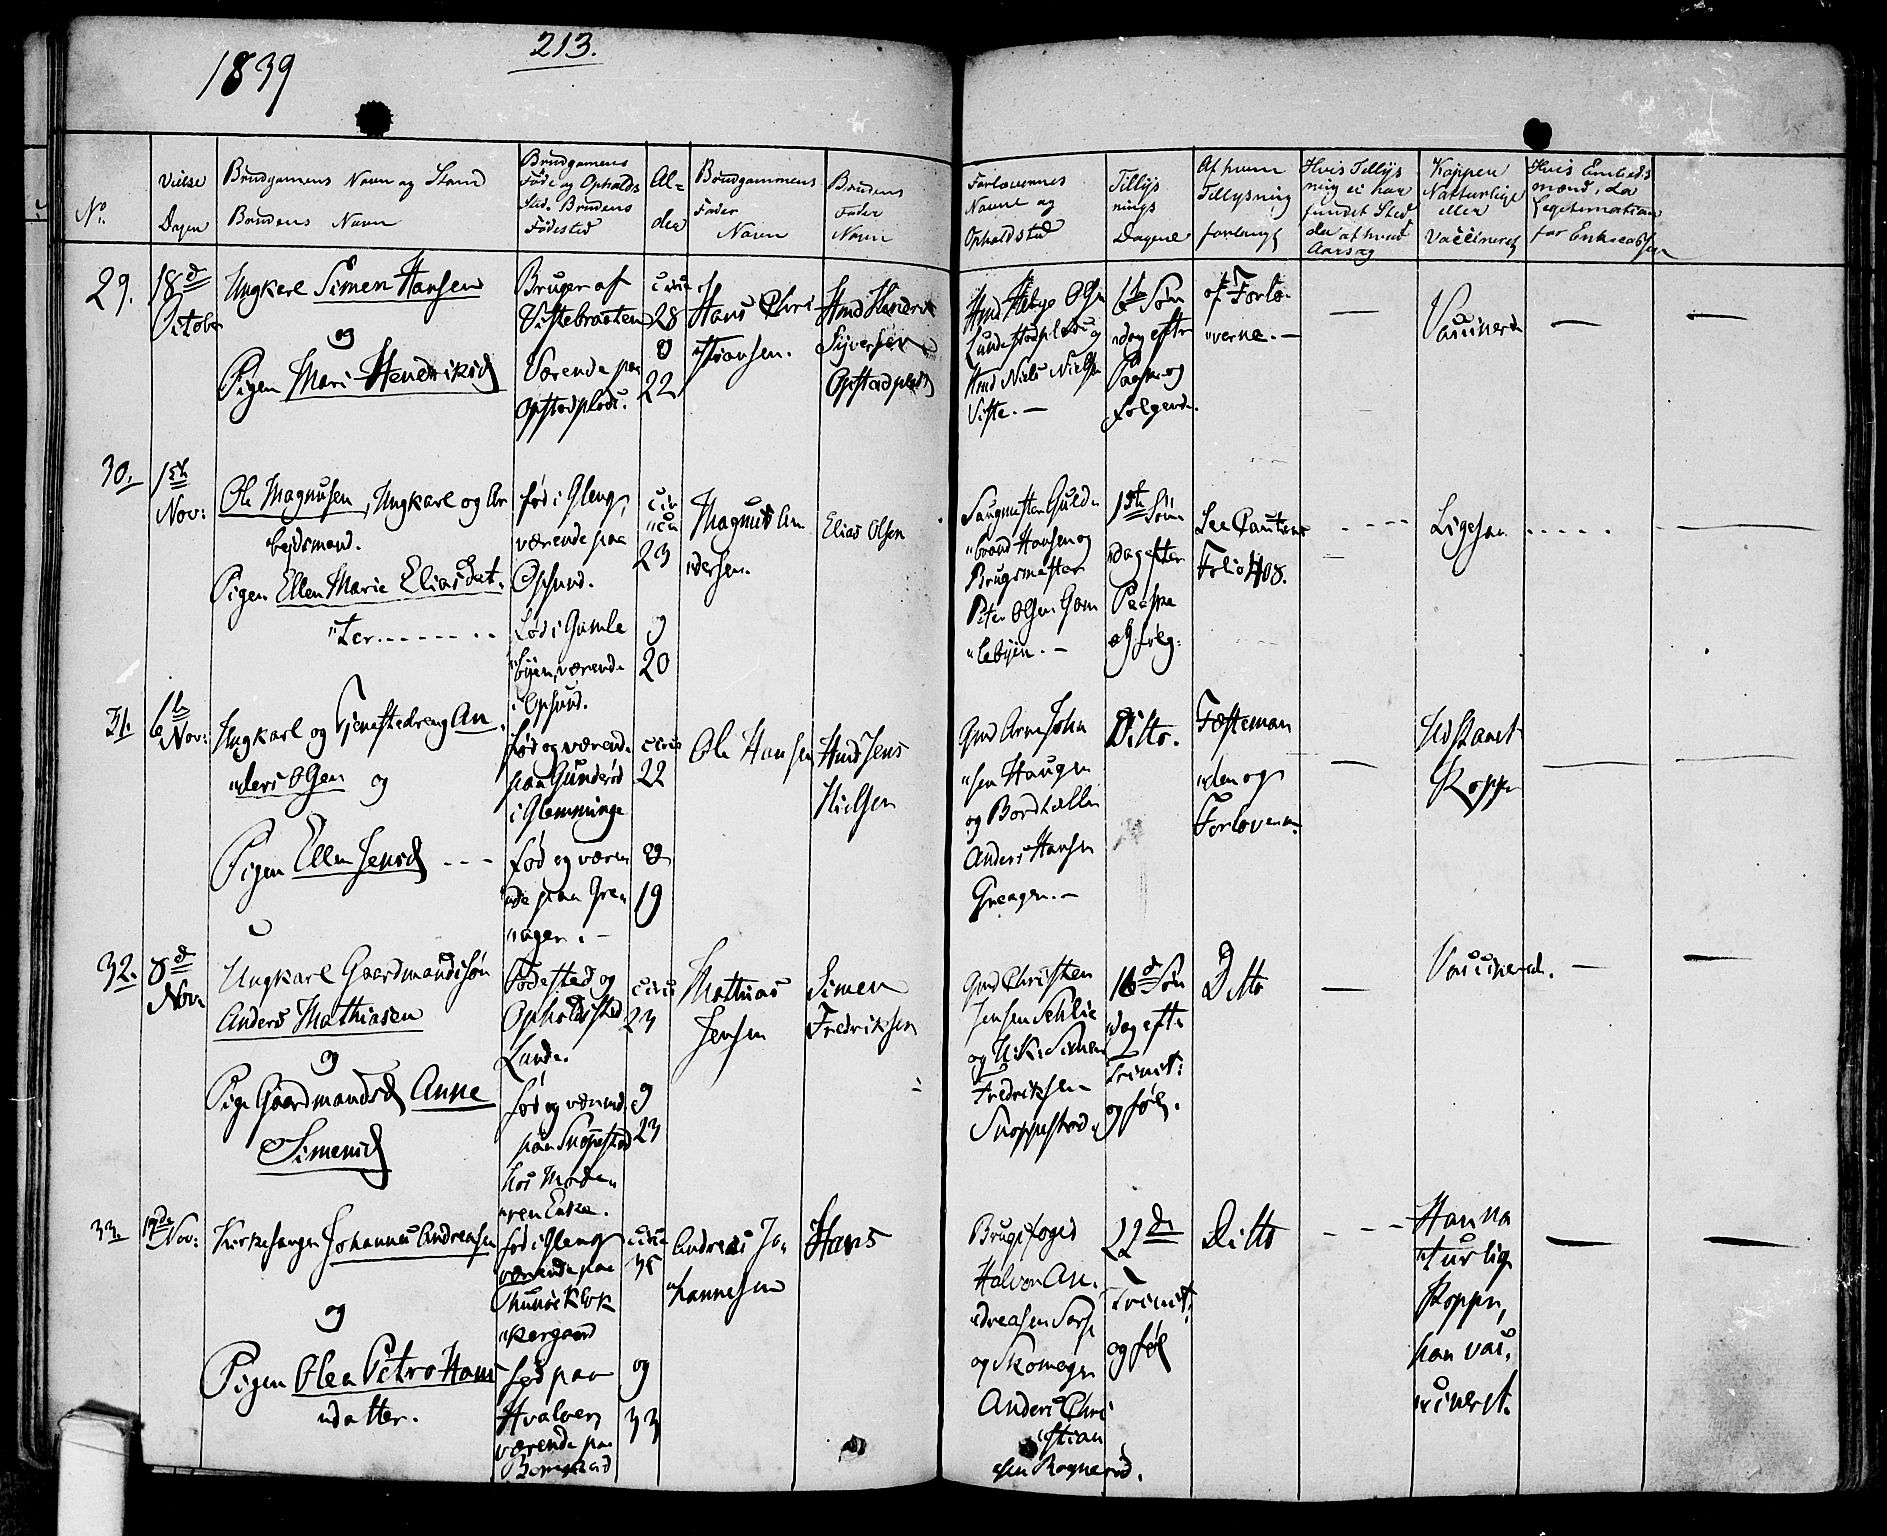 1839
213.
No.
Vielse
Dagen
Brudgamens Navn og Stand
Brudens Navn
Brudgamens
Føde og Opholds
Sted. Brudens
Fødested
Al=
der
Brudgammens
Fader
Navn
Brudens
Fader
Navn
Forlovernes
Navne og
Opholdsted
Tillys
nings
Dagene
Af hvem
Tillysning
forlangt
Hvis Tillys
ning ei har
fundet Sted
da af hvad
Aarsag
Koppen
Natturlige
eller
Vaccineret
Hvis Embeds
mænd, da
Legitimation
for Enkecassen
29.
18d
October
Ungkarl Simen Hansen
og
Pigen Mari Hendriksd
Bruger af
Vistebraaten
Værende paa
Opstadplads.
circa
28
og
22
Hans Chri
"stiansen.
Hmd Hendrik
Syversen
Opstadplads
Hmd Helge Olsen
Lundestadplads og
Hmd Niels Nielsen
Viste. —
6te Søn
"dag efter
Paaske og
følgende.
af Forlo-
"verne. —
—
Vaccinered
—
—
30.
1ste
Nov:
Ole Magnusen, Ungkarl og Ar
"bejdsmand.
Pigen Ellen Marie Eliasdat-
"ter.......
fød i Gleng,
værende paa
Opsund.
Fød i Gamle
"byen, værende
i Opsund.
cir
"ca
23
og
20
Magnus An
"dersen.
Elias Olsen
Saugmester Guld
"brand Hansen og
Brugsmester
Peter Olsen Gam
"lebyen. —
1ste Søn
"dag efter
Paaske
og følg:
See Cautions
Folio 408.
----
Ligesaa
.....
—
31.
6te
Nov:
Ungkarl og Tjenestedreng An-
"ders Olsen og
Pigen Ellen Jensd ---
Fød og værende
paa Gunderød
i Glemminge
fød og væren
"de paa Gre
"ager. —
circa
22
og
19
Ole Hansen
Hmd Jens
Nielsen
Gmd Arne Joha
"sen Haugen
og Bordtæller
Anders Hansen
Greager. —
Ditto.
Fæsteman
"den og
Forloverne.
—
Udstaaet
Kopper
—
—
32.
8d
Nov.
Ungkarl Gaardmandssøn
Anders Mathiasen
og
Pige Gaardmandsd Anne
Simensd
Fødested og
Opholdsted
Lunde.
fød og værend
paa Snoppestad
hos Mode
"ren Enke.
circa
23
og
23
Mathias
Jensen
Simen
Fredriksen
Gmd Christen
Jensen Schlie
og U.K. Simen
Fredriksen
Snoppestad
16d Søn
"dag efter
Trinit:
og føl.
Ditto
—
Vaccinered.
—
—
33.
17de Nov:
Kirkesanger Johannes Andreasen
og
Pigen Olea Petro Hans
"datter.
fød i Gleng
værende paa
Thunøe Klok
"kergaard
fød paa
Hvaløer
værende paa
circa
35
og
33
Andreas Jo-
"hannesen
Hans
Brugsfoged
Halvor An-
"dreasen Sarp
og Skomager
Anders Chri
"stian
"sen Rognerød.
22de
Trinit.
og føl
Ditto
- --
Han na
"turlig
Kopper,
hun vac-
"cineret.
—
—